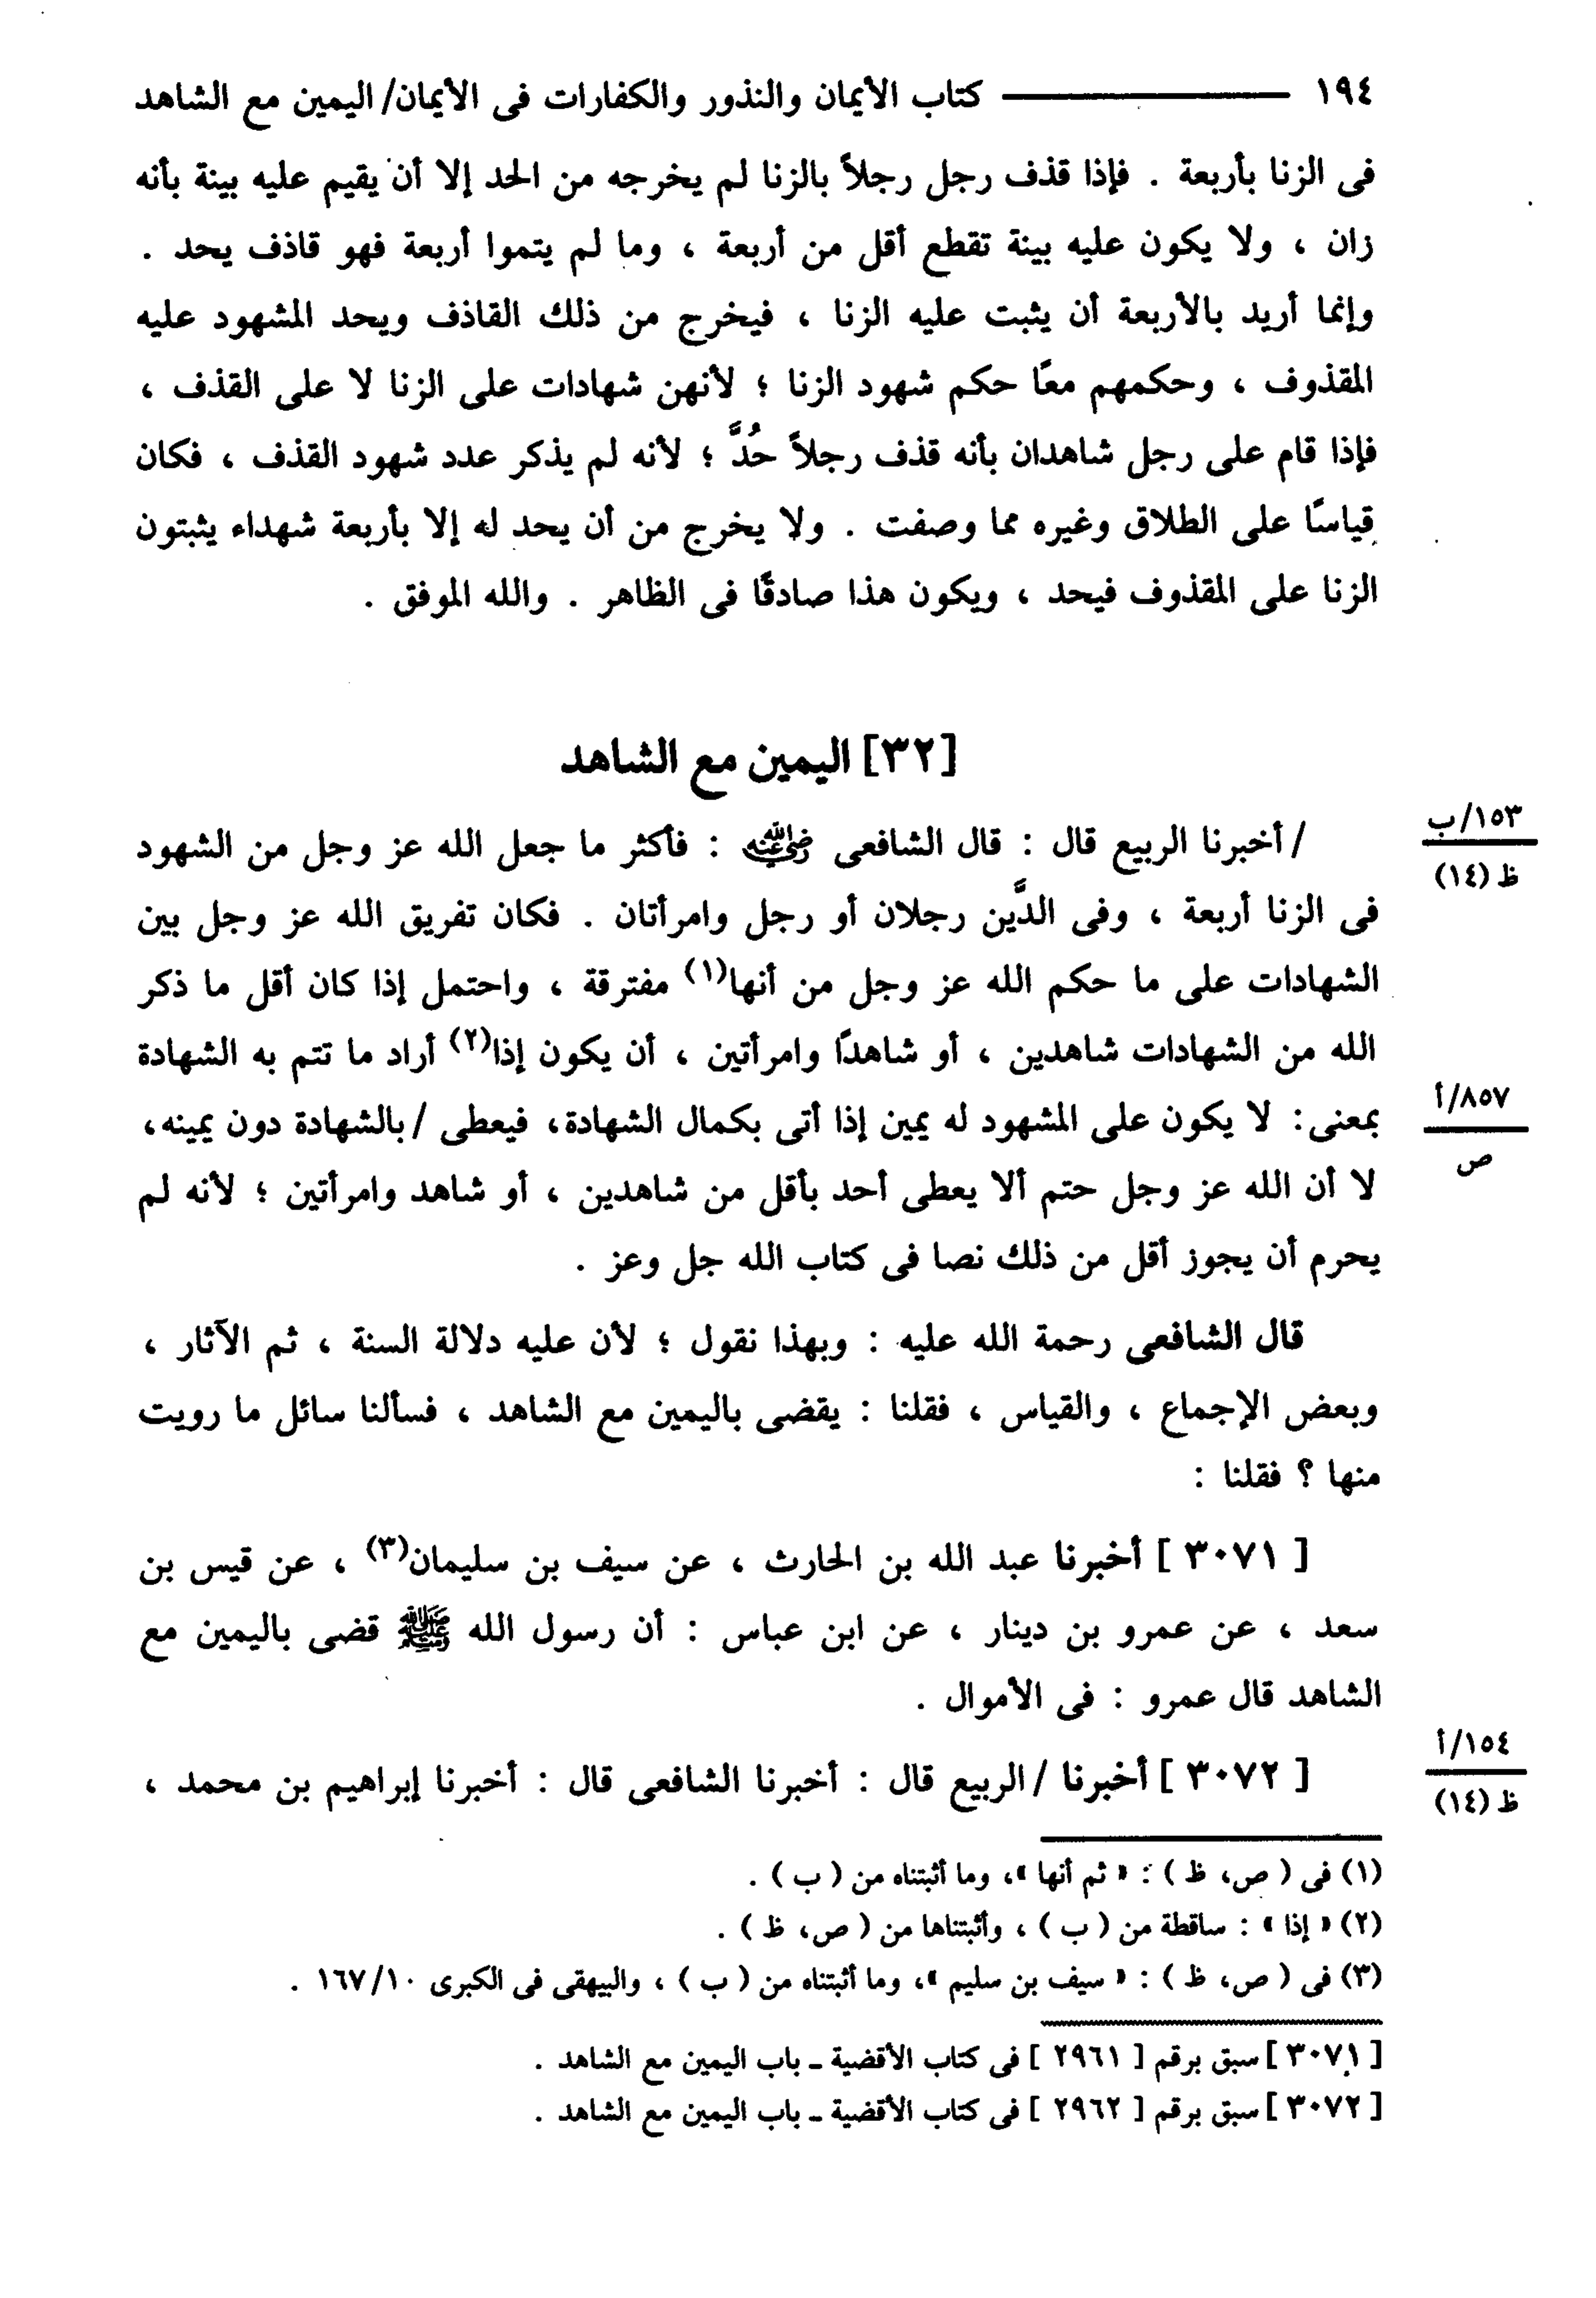 ١٩٤ ــــــــــــ كتاب الأيمان والنذور والكفارات فى الأيمان/ اليمين مع الشاهد
فى الزنا بأربعة . فإذا قذف رجل رجلاً بالزنا لم يخرجه من الحد إلا أن يقيم عليه بينة بأنه
زان ، ولا يكون عليه بينة تقطع أقل من أربعة ، وما لم يتموا أربعة فهو قاذف يحد .
وإنما أريد بالأربعة أن يثبت عليه الزنا ، فيخرج من ذلك القاذف ويحد المشهود عليه
المقذوف ، وحكمهم معًا حكم شهود الزنا ؛ لأنهن شهادات على الزنا لا على القذف ،
فإذا قام على رجل شاهدان بأنه قذف رجلاً حُدَّ ؛ لأنه لم يذكر عدد شهود القذف ، فكان
قياسًا على الطلاق وغيره مما وصفت . ولا يخرج من أن يحد له إلا بأربعة شهداء يثبتون
الزنا على المقذوف فيحد ، ويكون هذا صادقًا فى الظاهر . والله الموفق .
[٣٢] اليمين مع الشاهد
١٥٣/ب
ظ (١٤)
/ أخبرنا الربيع قال : قال الشافعى رضي الله عنه : فأكثر ما جعل الله عز وجل من الشهود
فى الزنا أربعة ، وفى الدَّين رجلان أو رجل وامرأتان . فكان تفريق الله عز وجل بين
الشهادات على ما حكم الله عز وجل من أنها(١) مفترقة ، واحتمل إذا كان أقل ما ذكر
الله من الشهادات شاهدين ، أو شاهدًا وامرأتين ، أن يكون إذا(٢) أراد ما تتم به الشهادة
٨٥٧/أ
ص
بمعنى: لا يكون على المشهود له يمين إذا أتى بكمال الشهادة، فيعطى / بالشهادة دون يمينه،
لا أن الله عز وجل حتم ألا يعطى أحد بأقل من شاهدين ، أو شاهد وامرأتين ؛ لأنه لم
يحرم أن يجوز أقل من ذلك نصا فى كتاب الله جل وعز .
قال الشافعى رحمة الله عليه : وبهذا نقول ؛ لأن عليه دلالة السنة ، ثم الآثار ،
وبعض الإجماع ، والقياس ، فقلنا : يقضى باليمين مع الشاهد ، فسألنا سائل ما رويت
منها ؟ فقلنا :
[ ٣٠٧١ ] أخبرنا عبد الله بن الحارث ، عن سيف بن سليمان(٣) ، عن قيس بن
سعد ، عن عمرو بن دينار ، عن ابن عباس : أن رسول الله ﷺ قضى باليمين مع
الشاهد قال عمرو : فى الأموال .
١٥٤/أ
ظ (١٤)
[ ٣٠٧٢ ] أخبرنا / الربيع قال : أخبرنا الشافعى قال : أخبرنا إبراهيم بن محمد ،
(١) فى ( ص، ظ ) : « ثم أنها »، وما أثبتناه من ( ب ) .
(٢) « إذا » : ساقطة من ( ب ) ، وأثبتناها من ( ص، ظ ) .
(٣) فى ( ص، ظ ) : « سيف بن سليم »، وما أثبتناه من ( ب ) ، والبيهقى فى الكبرى ١٦٧/١٠ .
[ ٣٠٧١] سبق برقم [ ٢٩٦١ ] فى كتاب الأقضية ـ باب اليمين مع الشاهد .
[ ٣٠٧٢] سبق برقم [ ٢٩٦٢ ] فى كتاب الأقضية ـ باب اليمين مع الشاهد .